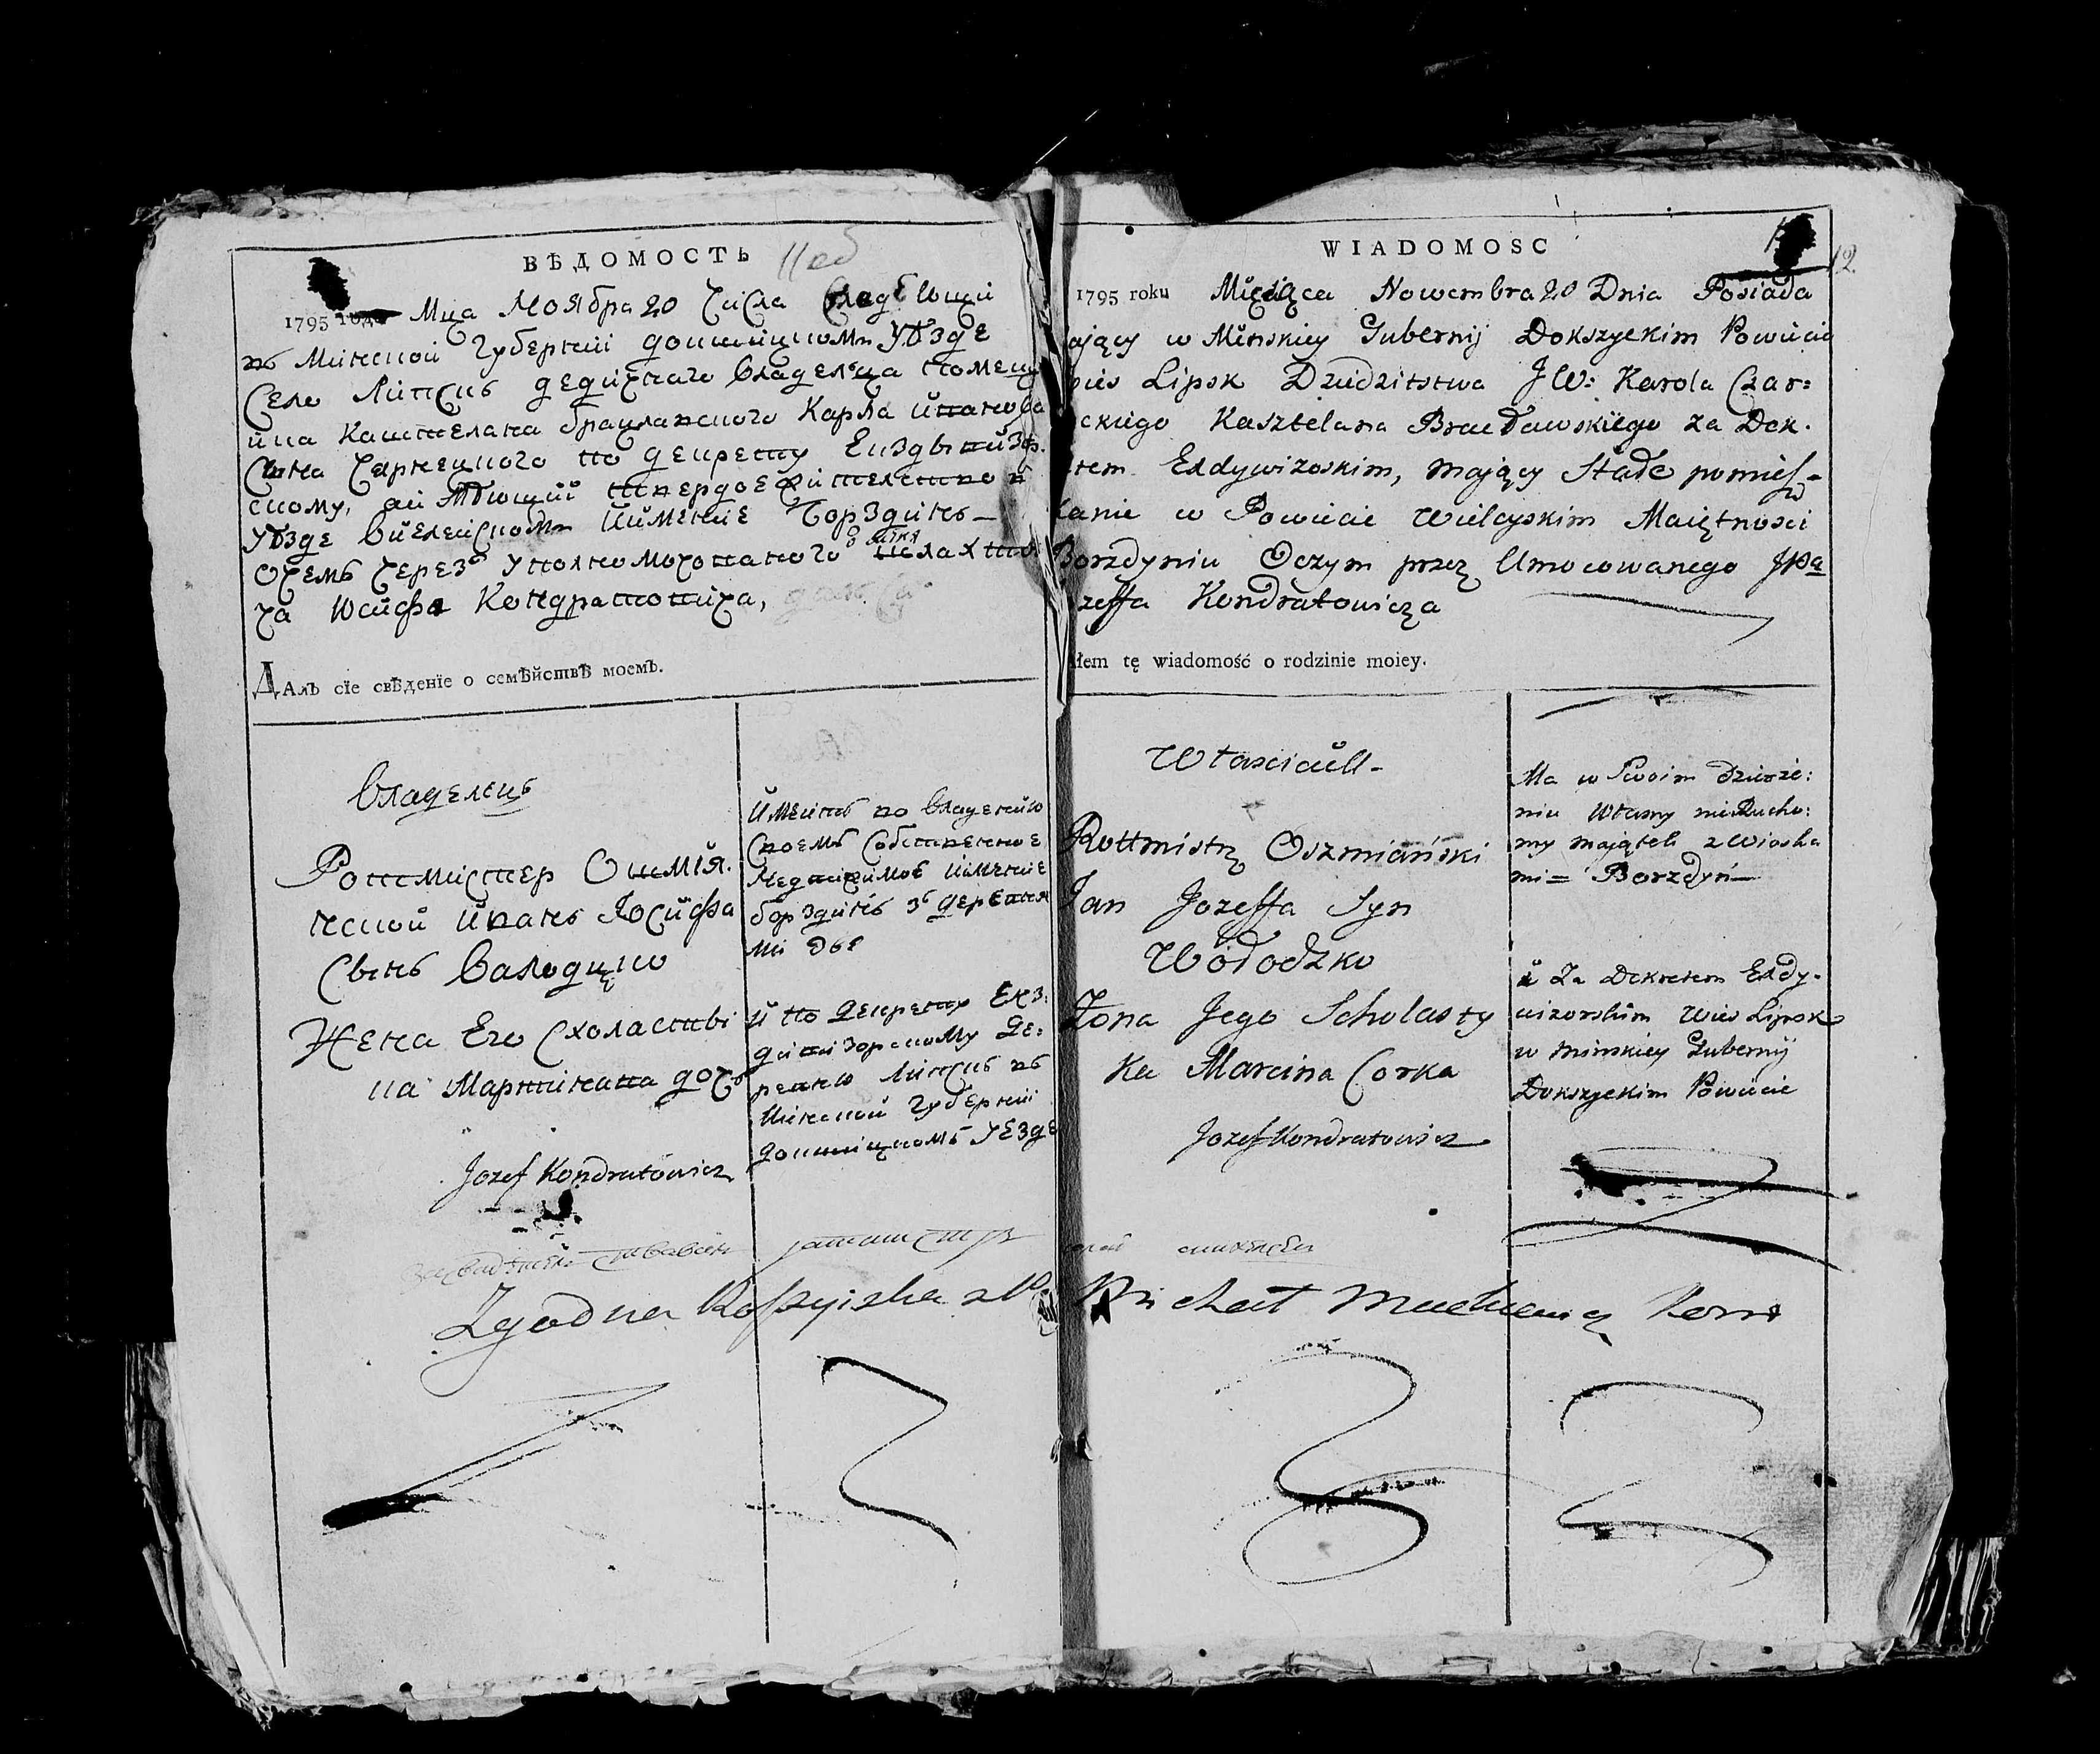 ВѢДОМОСТЬ
11об
1795 года Мца Ноября 20 числа
въ Минской Губернии Докшицкомъ Уѣзде
Село Липскъ дедичнаго Владельца помещ
ика Каштеляна Брацлавского Карла
Сына Чарнецкого по декрету
скому, а имѣющий твердое жителство в
Уѣзде Вилейскомъ имение Борздинь
о чемъ черезъ уполномочоного шляхти
ча Иосифа Кондратовича,
Далъ сїе свѣденїе о семѣйствѣ моемъ.
Владелецъ
Ротмистер Ошмян
ской Иванъ Иосифа
Сынъ Валодзко
Жена Его Схоласти
ка Мартинова дочь
Jozef Kondratowicz
Имеитъ во Владении
своемъ собственное
недвижимое имение
Борздинь з деревня
ми
и по декрету Екз
дивизорскому де
ревню Липскъ въ
Минской Губернии
Докшицкомъ Уезде
WIADOMOSC
12
1795 roku Miesiąca Nowembra 20 Dnia Posiada
iący w Minskiey Gubernij Dokszyckim Powiecie
wies Lipsk Dziedzitstwa JW: Karola Czar:
ckiego Kasztelana Bracławskiego za Dek.
retem Exdywizoskim, maiący Stałe pomiesz-
kanie w Powiecie Wileyskim Maiętnosci
Borzdyniu Oczym przez Umocowanego JPa
zeffa Kondratowicza
łem tę wiadomość o rodzinie moiey.
Własciciel
Rottmistrz Oszmiański
Jan Jozeffa Syn
Wołodzko
Żona Jego Scholasty
ka Marcina Corka
Jozef Kondratowicz
Ma w Swoim dzierże:
niu własny nieRucho:
my maiątek z wioska
mi = Borzdyń
i Za Dekretem Exdy-
wizorskim Wies Lipsk
w Minskiey Gubernij
Dokszyckim Powiecie
Zgodna Michał